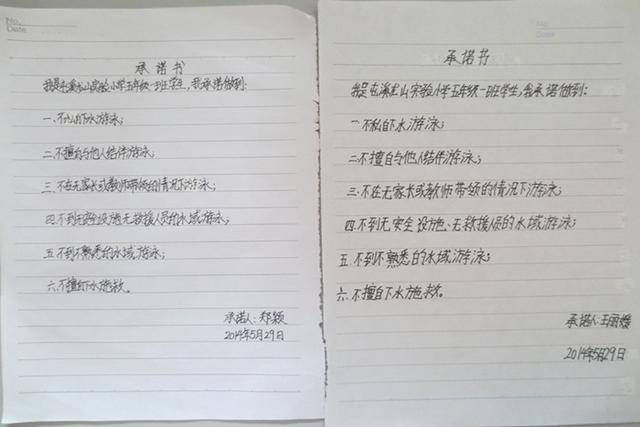 No.
Date
承诺书
我是屯溪龙山实验小学五年级一班学生，我承诺做到：
一.不私自下水游泳；
二.不擅自与他人结伴游泳；
三.不在无家长或教师带领的情况下游泳；
四.不到无安全设施、无救援人员的水域游泳；
五.不到不熟悉的水域游泳；
六.不擅自下水施救。
承诺人：郑颖
2014年5月29日
Date
承诺书
我是屯溪龙山实验小学五年级一班学生，我承诺做到：
一.不私自下水游泳；
二.不擅自与他人结伴游泳；
三.不在无家长或教师带领的情况下游泳；
四.不到无安全设施、无救援人员的水域游泳；
五.不到不熟悉的水域游泳；
六.不擅自下水施救。
承诺人：王雨媛
2014年5月29日